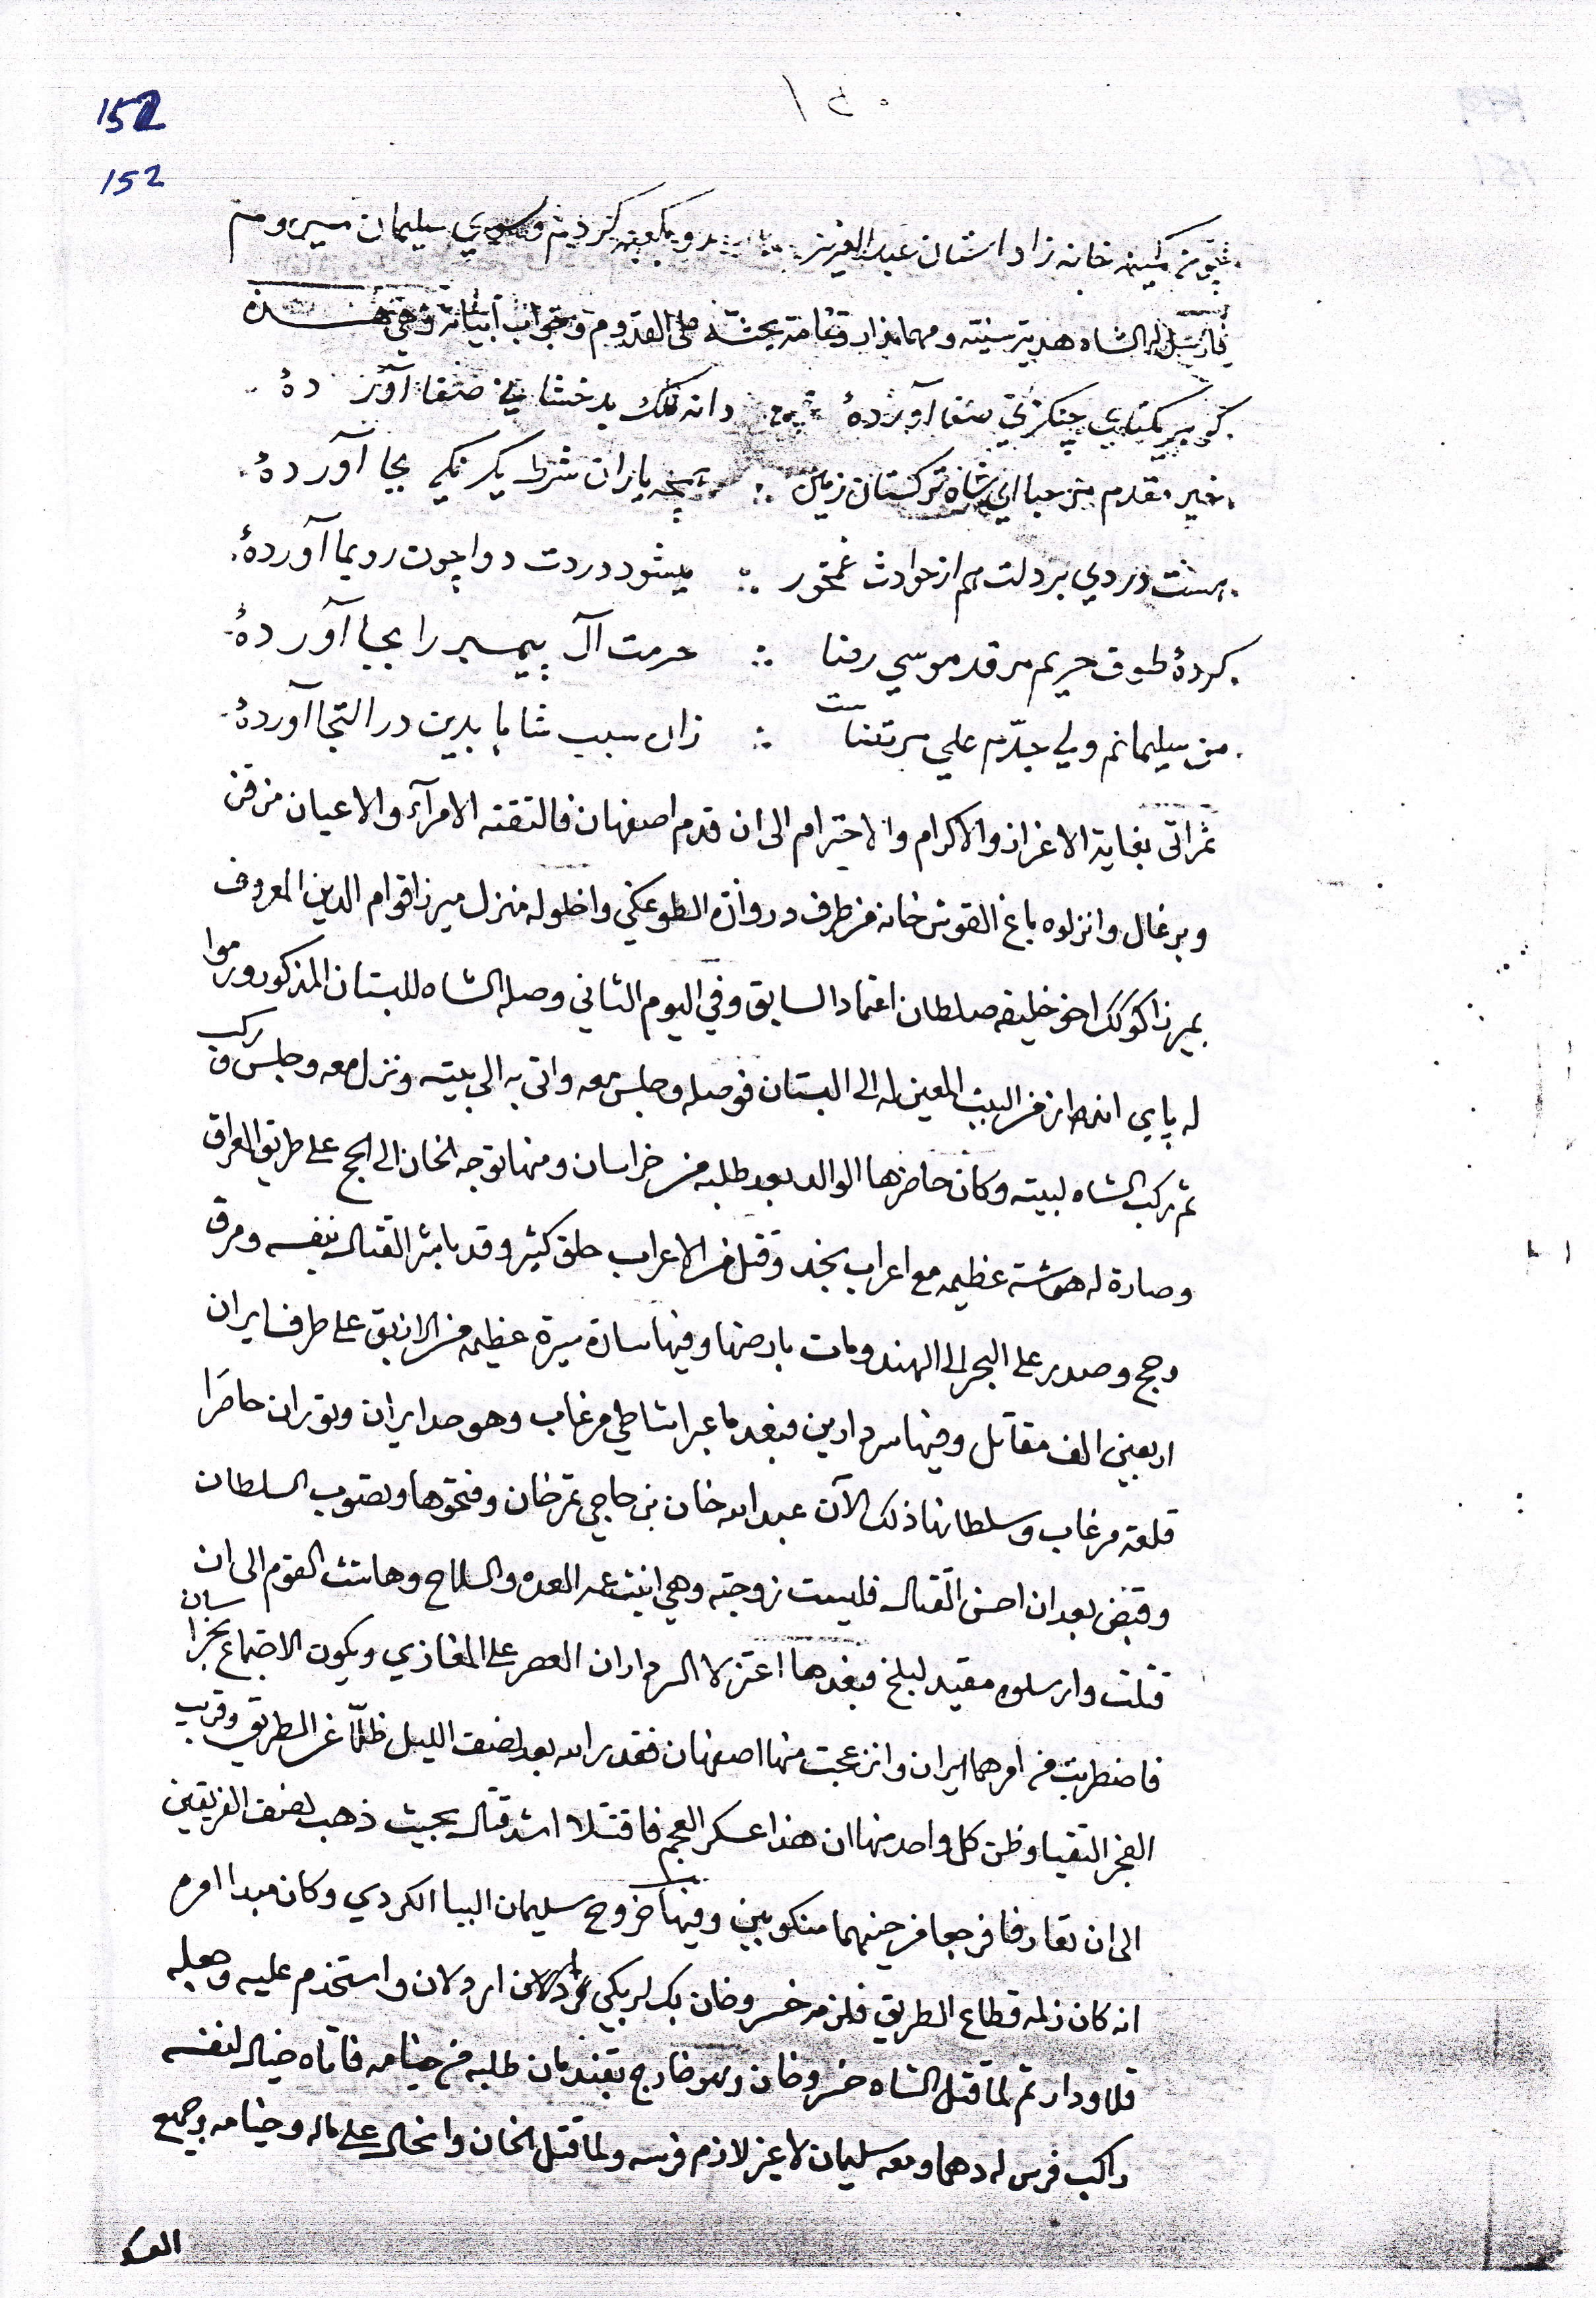 152
152
خانه زاد استان عبد العزيز رو بكعبه كرديم وسوي سليمان ميروم
فارسل له الشاه هدية سنية ومهماندار وتمامة بحثه على القدوم وجواب ابياته وهي هذه
كوهر يكتاي چنكزي صفا آوردهٔ دانه لعلك بدخشاني صفا آوردهٔ
خير مقدم مرحبا اي شاه تركستان زمين ∴ بچه ياران شرط يكرنكي بجا آوردهٔ
هست دردي بر دلت هم از حوادث غم مخور ∴ ميشود دردت دوا چون رو بما آوردهٔ
كردهٔ طوف حريم مرقد موسي رضا ∴ حرمت آل پيمبر را بجا آوردهٔ
من سليمانم ولي جدّم علي مرتضاست ∴ زان سبب شاها بدين در التجا آوردهٔ
ثم اتى بغاية الاعزاز والاكرام والاحترام الى ان قدم اصفهان فالتقته الامرآء والاعيان من قز
وبرغال وانزلوه باغ القوش خانه من طرف دروازة الطوعكي واخلوا له منزل ميرزا قوام الدين المعروف
بميرزا كوكك اخو خليفه صلطان اعتماد السابق وفي اليوم الثاني وصله الشاه للبستان المذكور ورموا
له پاي انداز من البيت المعين له الى البستان فوصله وجلس معه واتى به الى بيته ونزل معه وجلس وركب
ثم ركب الشاه لبيته وكان حاضرها الوالد بعد طلبه من خراسان ومنها توجه الخان الى الحج على طريق العراق
وصارة له هوشة عظيمه مع اعراب نجد وقتل من الاعراب خلق كثير وقد باشر القتال بنفسه ومرق
وحج وصدر على البحر الى الهند ومات بارضها وفيها سارة سيرة عظيمه من الازبق على طرف ايران
اربعين الف مقاتل وفيها سردارين فبعد ما عبرا شاطي مرغاب وهو حد ايران وتوران حاصرا
قلعة مرغاب وسلطانها ذلك الآن عبد الله خان بن حاجي تمرخان وفتحوها وبصوب السلطان
وقبض بعد ان احسن القتال فلبست زوجته وهي ابنت عمه العده والسلاح وهاشت القوم الى ان
قتلت وارسلوه مقيد لبلخ فبعدها اعتزلا السرداران العصر على المغازي ويكون الاجتماع بخراسان
فاضطربت من امرهما ايران وانزعجت منها اصفهان فقدر الله بعد نصف الليل ظلّا عن الطريق وقريب
الفجر التقيا وظن كل واحد منها ان هذا عسكر العجم فاقتتلا اشد قتال بحيث ذهب نصف الفريقين
الى ان تعارفا فرجعا من حينهما منكوبين وفيها خروج سليمان الببا الكردي وكان مبدا امره
انه كان زلمه قطاع الطريق فلزمه خسرو خان بكلربكي اردلان واستخدم عليه وجعله
قلاودار ثم لما قتل الشاه خسرو خان وهو خارج بقندمان طلبه من خيامه فاتاه خيال لنفسه
راكب فرس له دهما ومعه سليمان لا غير لازم فرسه ولما قتل الخان وانحال على ماله وخيامه وجميع
العسكر